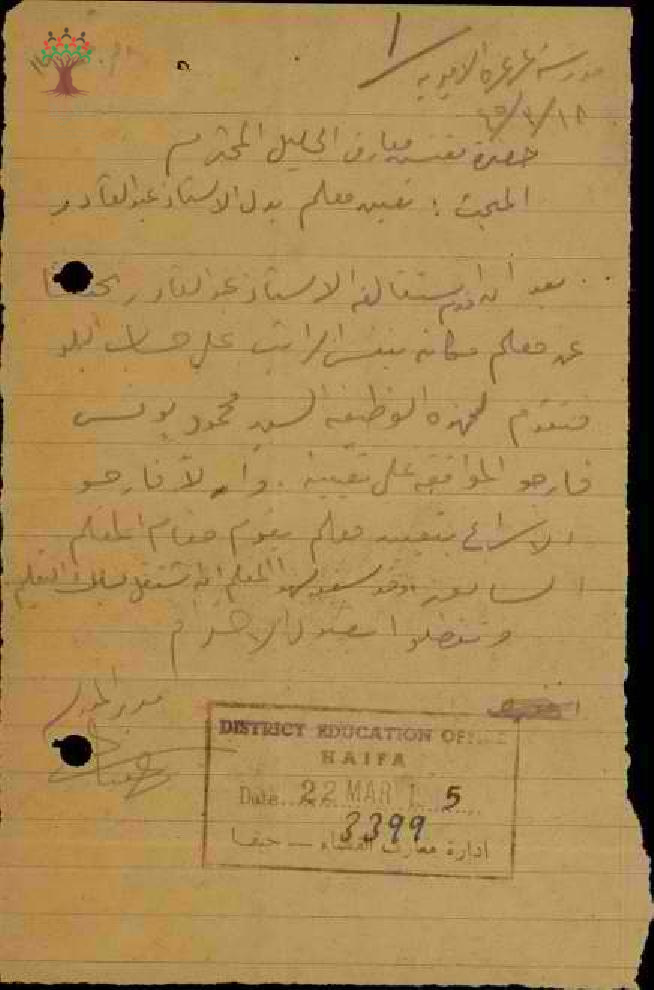 مدرسة عرعرة الاميرية
٤٥/٣/١٨
حضرة مفتش معارف الجليل المحترم
المبحث : تعيين معلم بدل الاستاذ عبد القادر
بعد ان قدم استقالته الاستاذ عبد القادر بحثنا
عن معلم مكانه بنفس الراتب على حساب البلد
فتقدم لهذه الوظيفة السيد محمود يونس
فارجو الموافقة على تعيينه . والا فارجو
الاسراع بتعيين معلم يقوم مقام المعلم
السابق لهذا المعلم ان اشتغل بسلك التعليم
وتفضلوا بقبول الاحترام
مدير المدرسة
DISTRICT EDUCATION OFFICE
HAIFA
Date 22 MAR 1 5
3399
ادارة معارف القضاء — حيفا